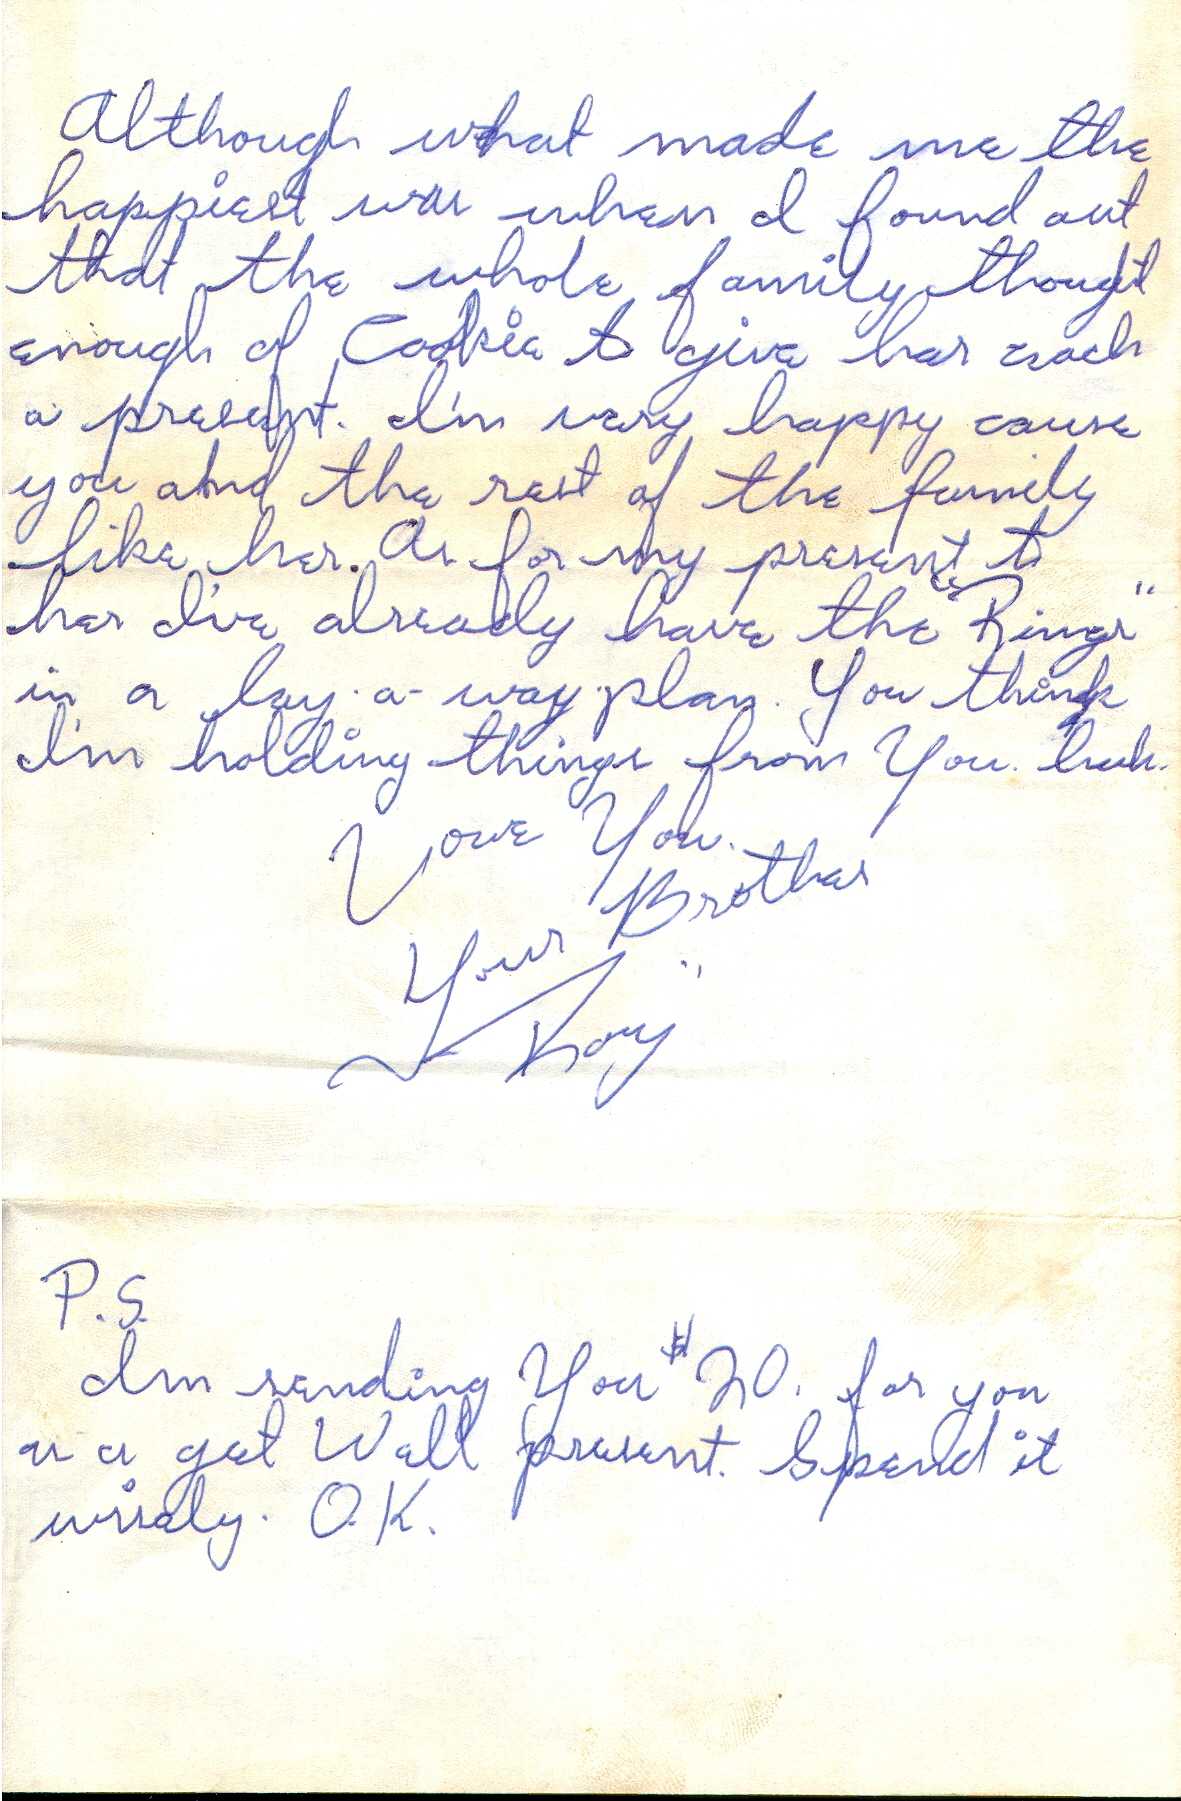 Although what made me the
happiest was when I found out
that the whole family thought
enough of Cookie to give her each
a present. I'm very happy cause
you and the rest of the family
like her. As for my present to
her I've already have the "Rings"
in a lay-a-way-plan. You think
I'm holding things from You. huh.
Love You.
Your Brother
"Roy"
P.S.
I'm sending You $20. for you
as a get Well present. Spend it
wisely. O.K.